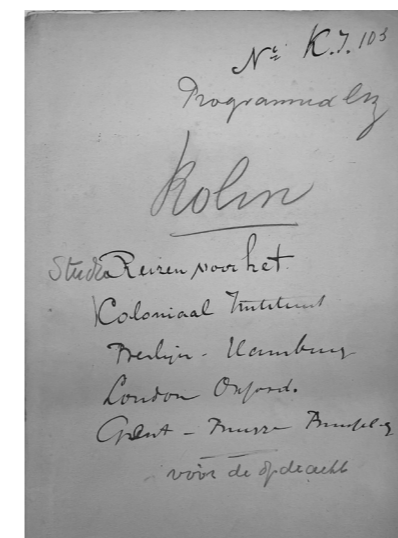 No K.I. 103
Programma's enz
Koln
Studie Reizen voor het
Koloniaal Instituut
Berlijn - Hamburg
London Oxford.
Gent - Brugge Brussel
vóór de opdracht